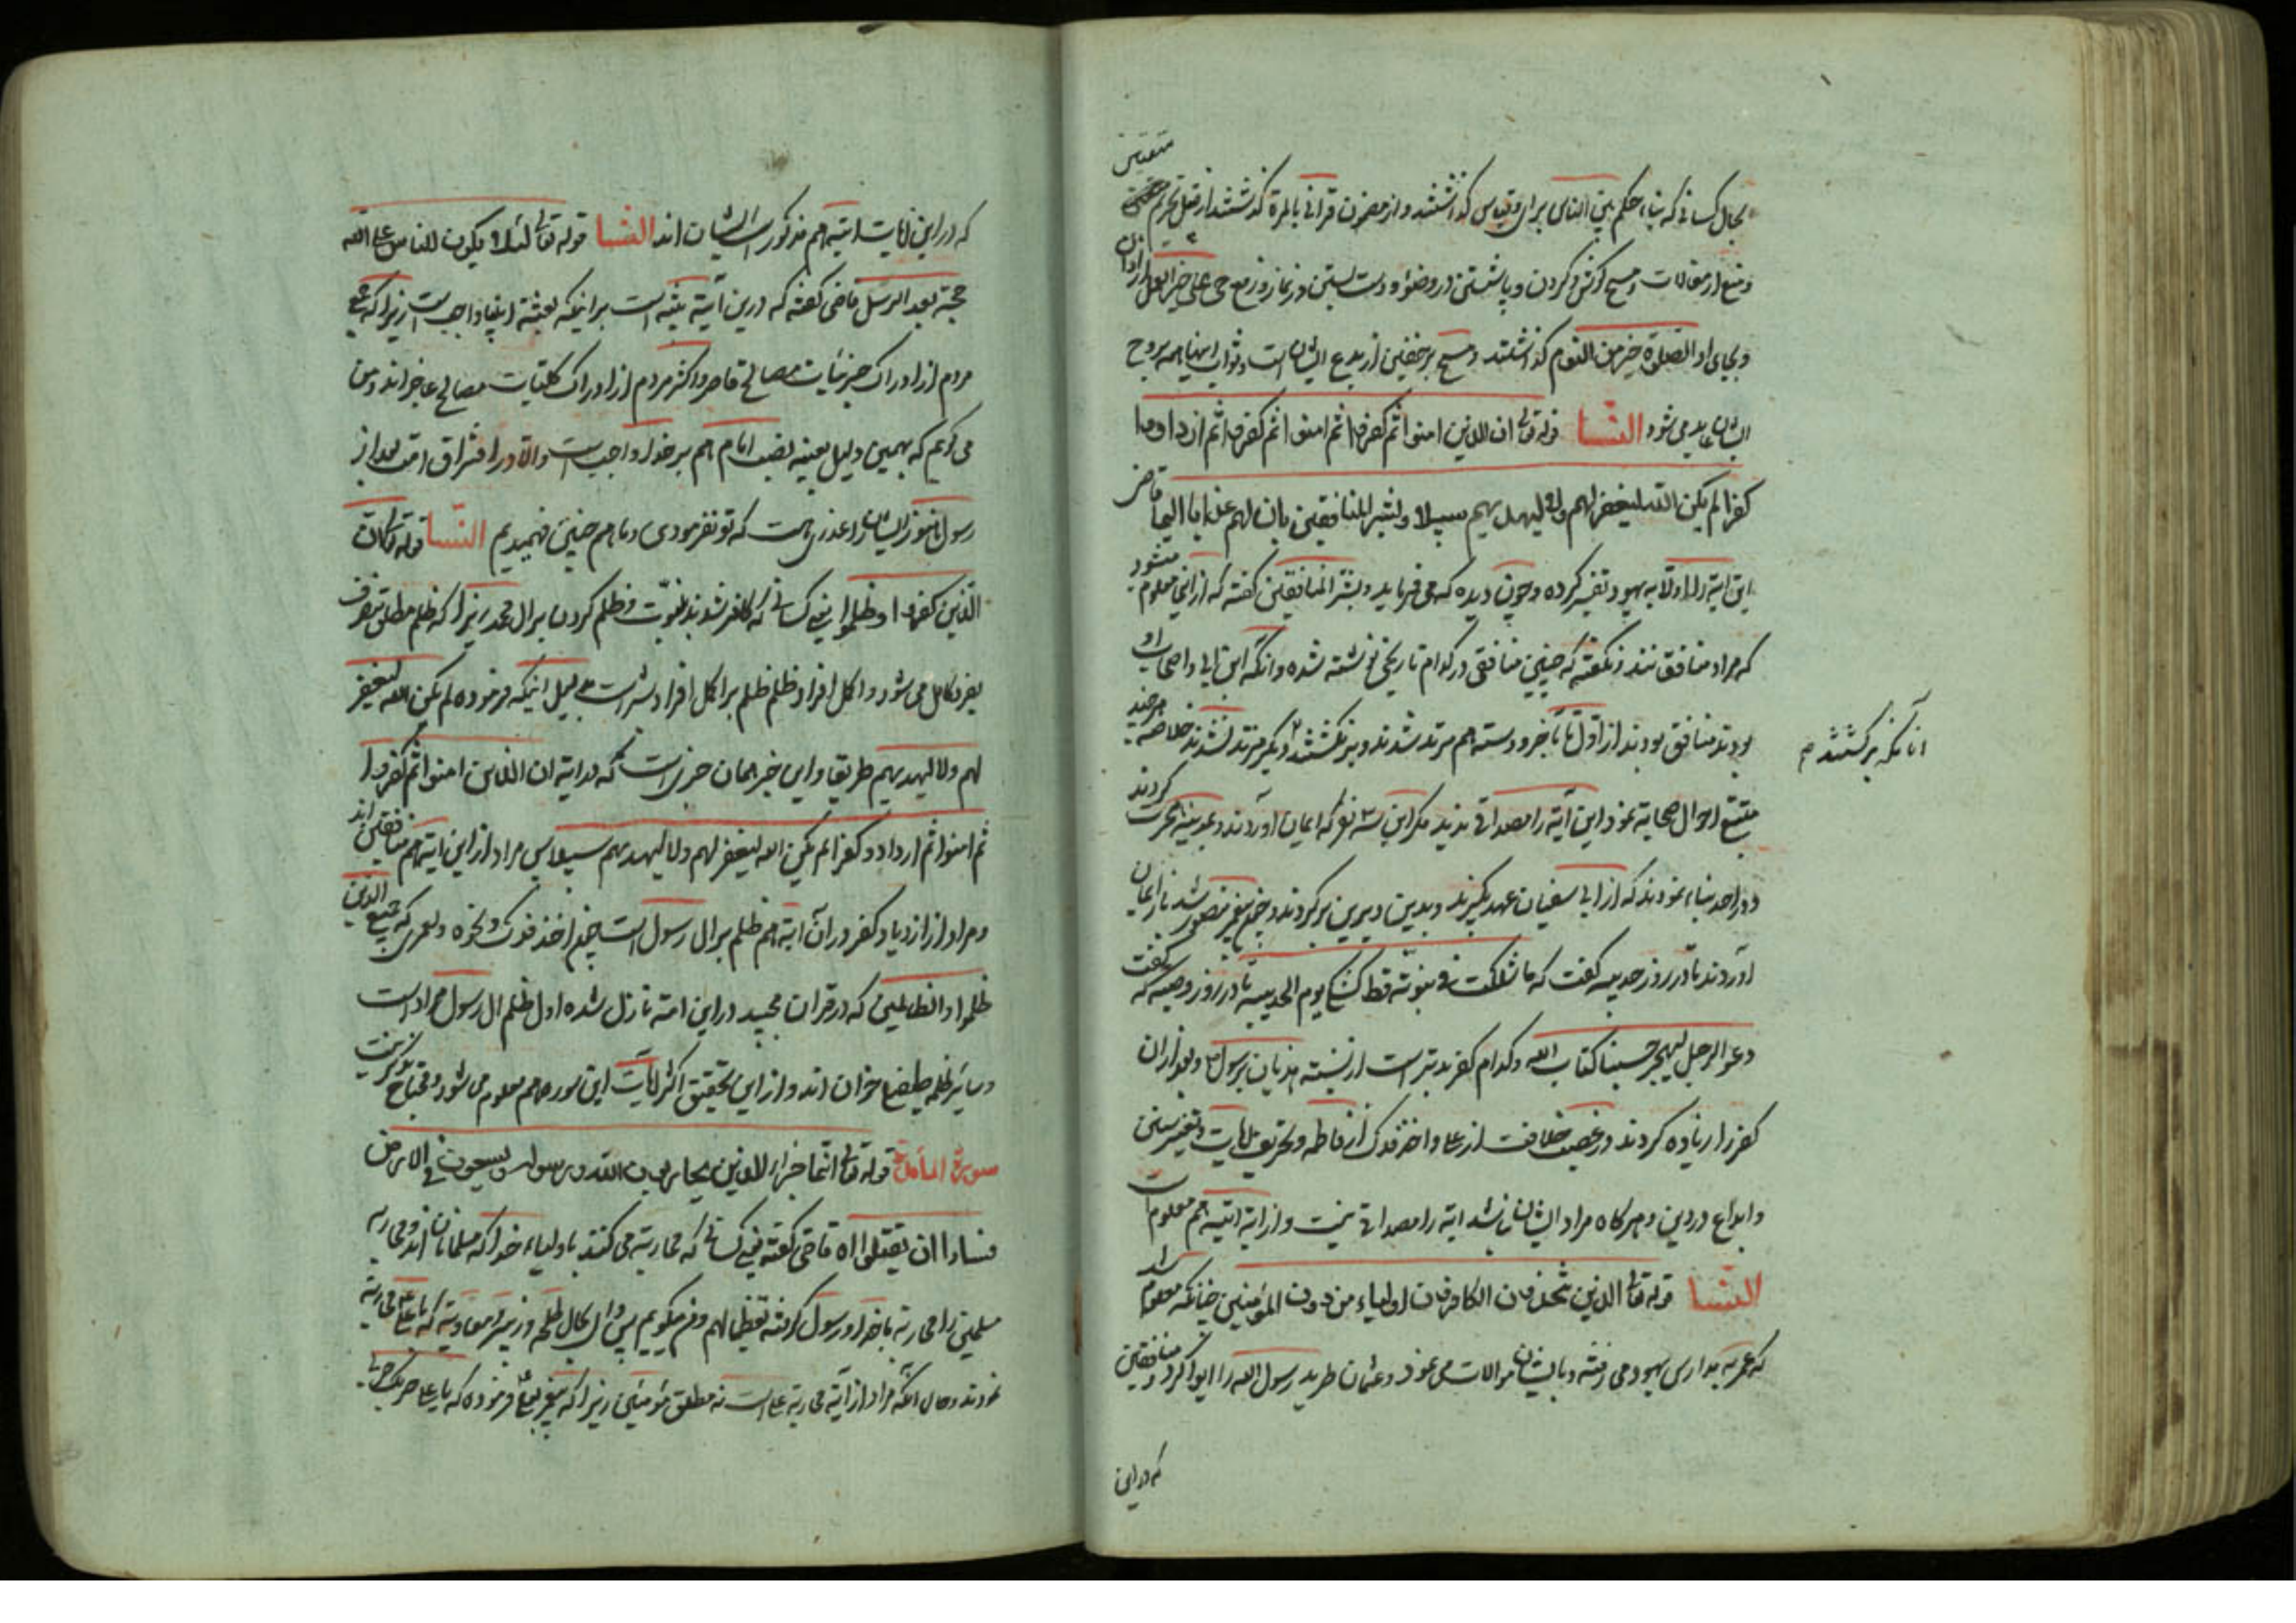 بحال کسانی که بناء حکم بین الناس برای و قیاس گذاشتند و از مضمون قرانی بالمرة گذشتند از قبل تحریم متعتین
و منع از مغالات و مسح گوش و گردن و پا شستن در وضوء و دست بستن در نماز و رفع حی علی خیر العمل از اذان
و بجای او الصلوة خیر من النوم گذاشتند و مسح بر خفین از بدع ایشان است و ثواب اینها همه بروح
ایشان عاید می شود النسا قوله تعالی ان الذین امنوا ثم کفروا ثم امنوا ثم کفروا ثم ازدادوا
کفرا لم یکن الله لیغفر لهم ولا لیهدیهم سبیلا و بشر المنافقین بان لهم عذابا الیما قاضی
این ایة را اولا به یهود تفسیر کرده و چون دیده که می فرماید و بشر المنافقین گفته که از این معلوم میشود
که مراد منافقین اند و نگفته که چنین منافقی در کدام تاریخی نوشته شده و انگه ابن ابی و اصحاب او
بودند منافق بودند از اول تا باخر و دسته هم مرتد شدند و برنگشتند و دیگر مرتد نشدند خلاصه هر چند
آنانکه برگشتند م
تتبع احوال صحابه نمود این آیة را مصداقی ندید مگر این سه نفر که ایمان آوردند و بمدینه هجرت کردند
و در احد بناء نمودند که از ابی سفیان عهد بگیرند و بدین دیرین برگردند و چون پیغمبر منصور شد باز ایمان
آوردند تا در روز حدیبیه گفت که ما شککت فی نبوته قط کشکی یوم الحدیبیة تا در روز وصیه که گفت
دعو الرجل لیهجر حسبنا کتاب الله و کدام کفر بدتر است از نسبته هذیان برسول و بعد از ان
کفر را زیاده کردند در غصب خلافت از علی و اخذ فدک از فاطمه و تحریف ایات و تغییر سنن
و ابداع در دین و هرگاه مراد ایشان نباشد ایة را مصداقی نیست و از ایة اتیه هم معلوم است
النسا قوله تعالی الذین یتخذون الکافرین اولیاء من دون المؤمنین چنانکه معلوم شد
که عمر به مدارس یهود می رفته و با ایشان موالات می نمود و عثمان طرید رسول الله را ایوا کرد و منافقین
که در این
که در این ایات اتیه هم مذکور است ایشان اند النسا قوله تعالی لئلا یکون للناس علی الله
حجة بعد الرسل قاضی گفته که درین آیة تنبیه است بر اینکه بعثة انبیا واجب است زیرا که جمیع
مردم از ادراک جزئیات مصالح قاصر و اکثر مردم از ادراک کلیات مصالح عاجز اند و من
می گویم که بهمین دلیل بعینه نصب امام هم بر خدا واجب است و الا در افتراق امت بعد از
رسول هنوز ایشان را عذری هست که تو نفرمودی و ما هم چنین فهمیدیم النسا قوله تعالی ان
الذین کفروا و ظلموا یعنی کسانی که کافر شدند بنبوت و ظلم کردند بر ال محمد زیرا که ظلم مطلق منصرف
بفرد کامل می شود و اکمل افراد ظلم ظلم بر اکمل افراد بشر است بدلیل اینکه فرموده لم یکن الله لیغفر
لهم ولا لیهدیهم طریقا و این خبر همان خبری است که در ایة ان الذین امنوا ثم کفروا
ثم امنوا ثم ازدادو کفرا لم یکن الله لیغفر لهم ولا لیهدیهم سبیلا پس مراد از این ایة هم منافقین اند
و مراد از ازدیاد کفر در آن ایة هم ظلم بر ال رسول است چون اخذ فدک و نحوه و لعمری که جمیع الذین
ظلموا و الظالمین که در قران مجید در این امة نازل شده اول ظلم ال رسول مراد است
و سایر ظلمه طفیلی خوان اند و از این تحقیق اکثر آیات این سوره هم معلوم می شود و محتاج بذکر نیست
سورة المائدة قوله تعالی انما جزاء الذین یحاربون الله و رسوله و یسعون فی الارض
فسادا ان یقتلوا اه قاضی گفته یعنی کسانی که محاربه می کنند با ولیاء خدا که مسلمانان اند و محاربه
مسلمین را محاربه با خدا و رسول گرفته تعظیما لهم و من میگویم پس وای بحال طلحه و زبیر و معاویة که با علی محاربه
نمودند و حال انکه مراد از آیة محاربه علی است نه مطلق مؤمنین زیرا که پیغمبر بعلی فرموده که یا علی حربک حربی